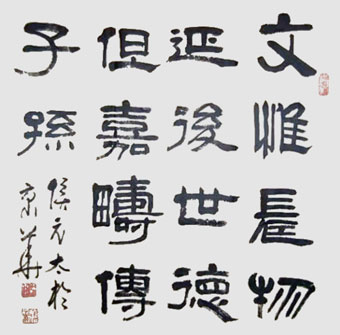 文惟長物
延後世德
但嘉疇傳
子孫
侯元太於
京華